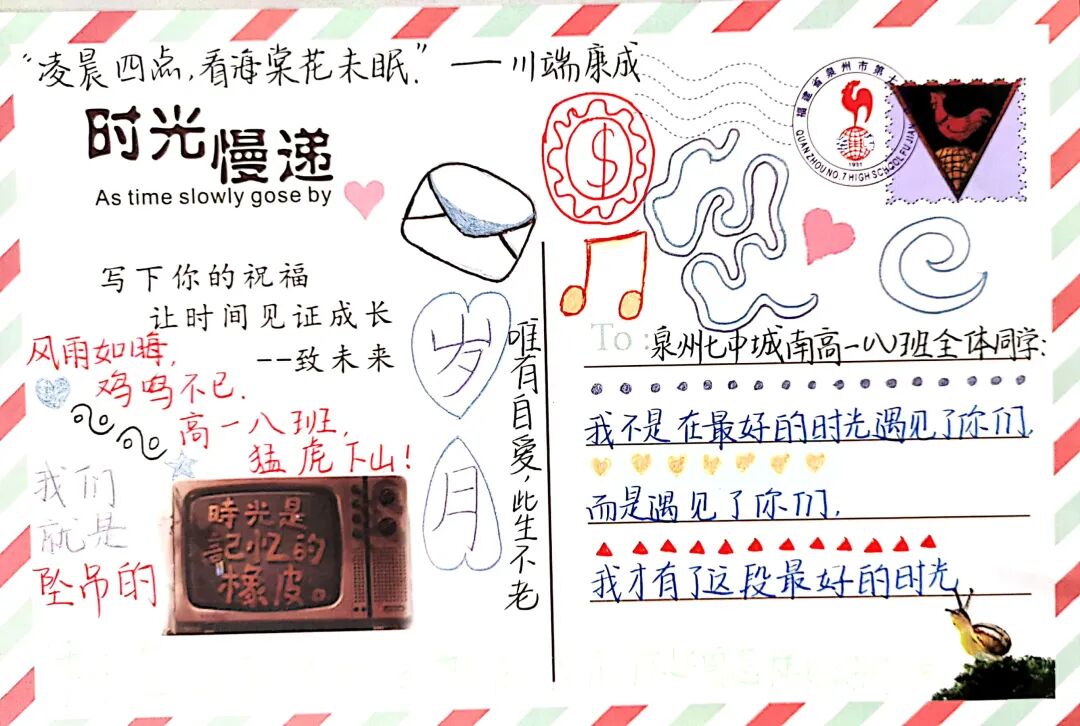 “凌晨四点,看海棠花未眠.” ——川端康成
时光慢递
As time slowly gose by
写下你的祝福
让时间见证成长
--致未来
风雨如晦,
鸡鸣不已.
高一八班,
猛虎下山!
我们
就是
坠吊的
時光是
記忆的
橡皮。
岁月
唯有自爱,此生不老
$
福建省泉州市第七
QUANZHOU NO.7 HIGH SCHOOL FUJIAN
1931
To:泉州七中城南高一(八)班全体同学:
我不是在最好的时光遇见了你们,
而是遇见了你们,
我才有了这段最好的时光